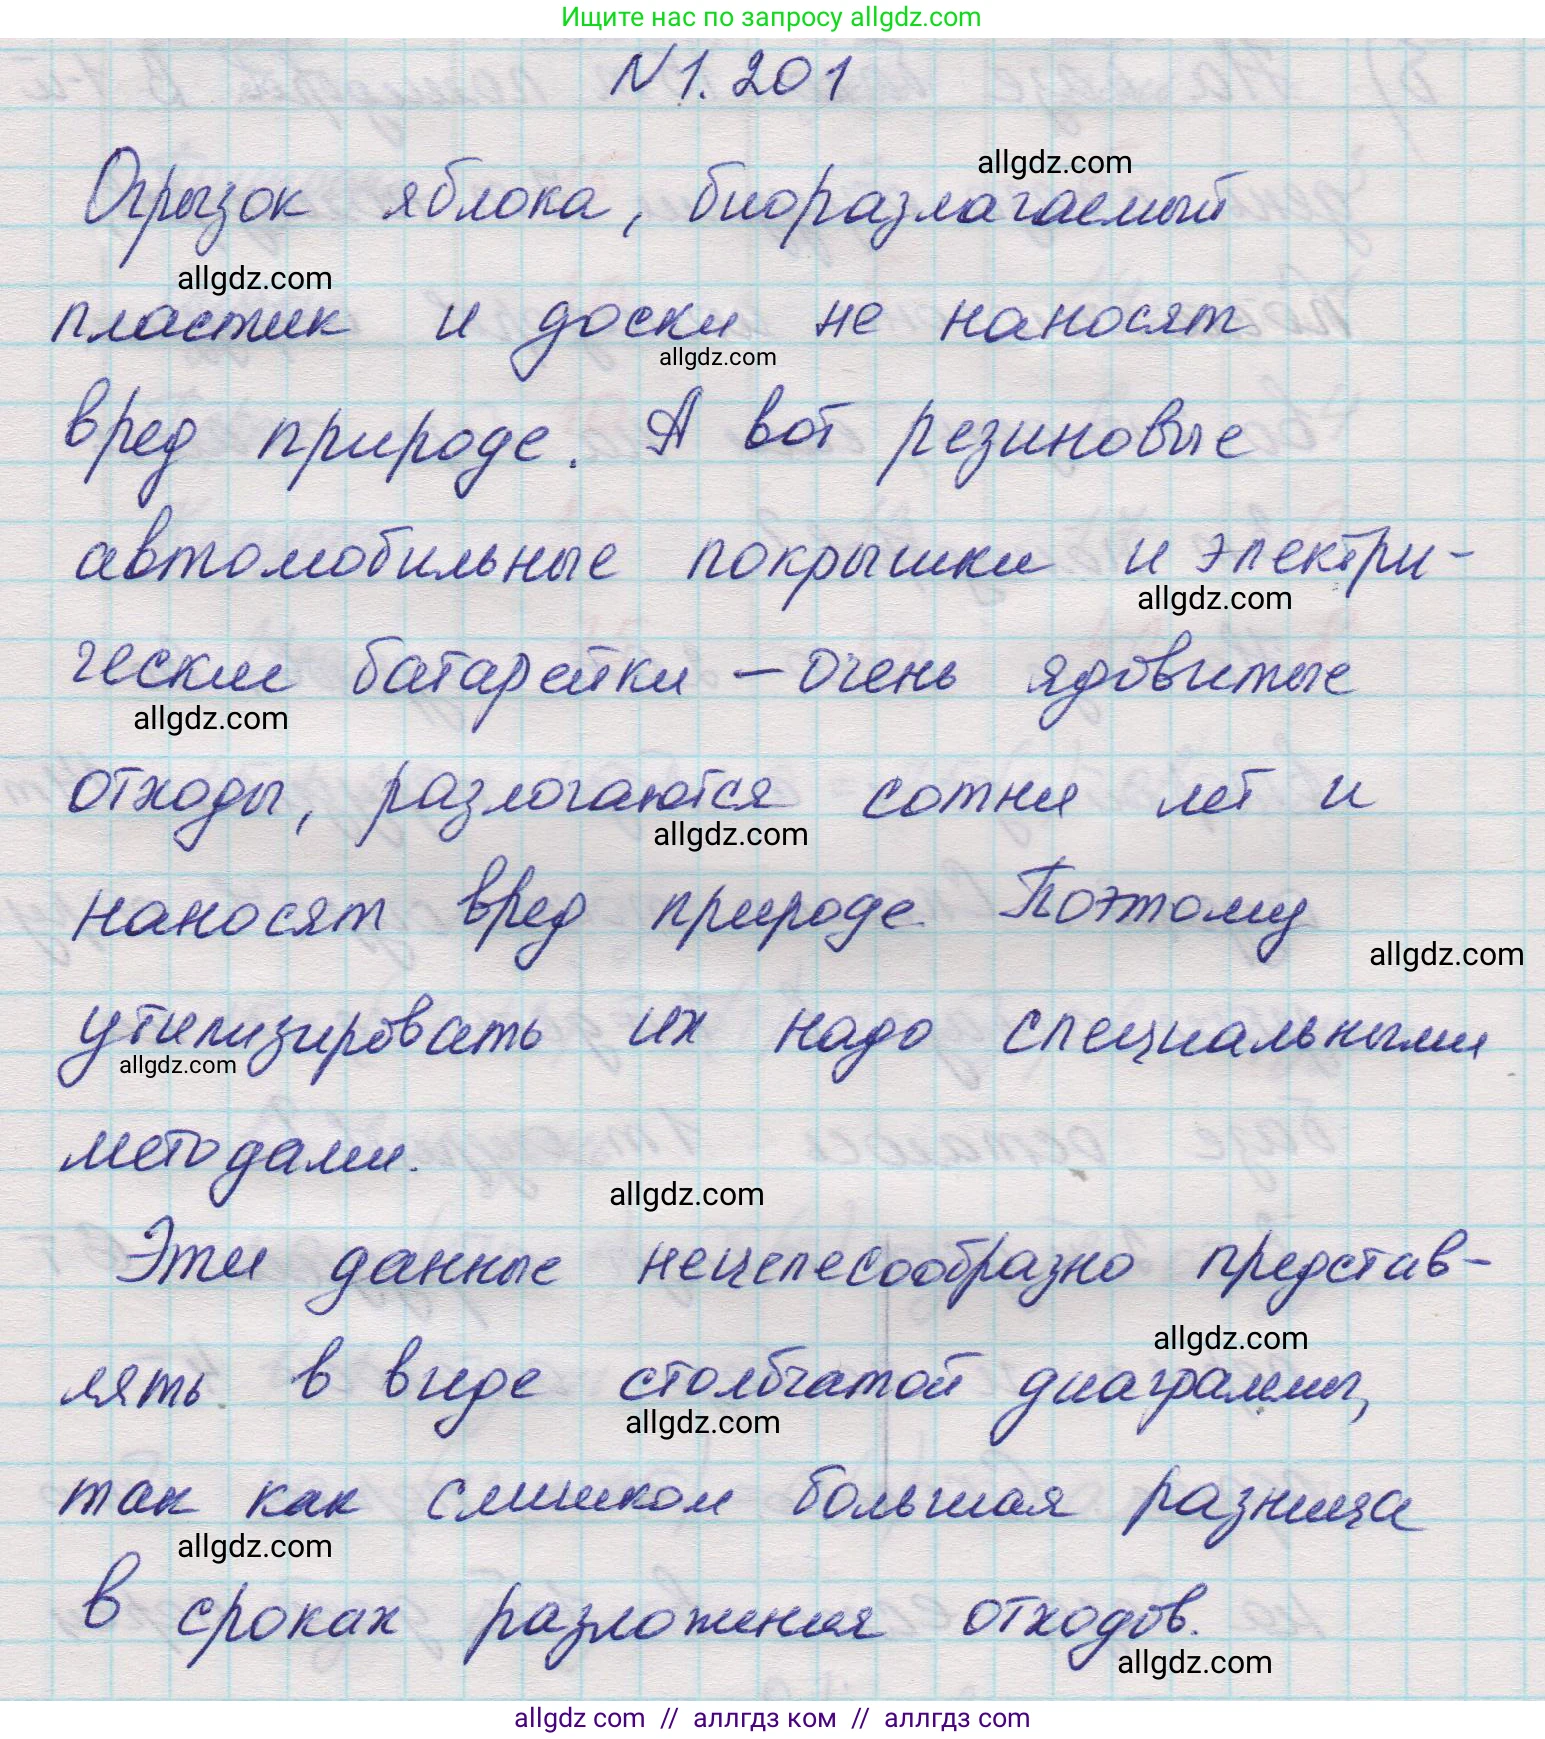 Ищите нас по запросу allgdz.com
N1.201
allgdz.com
Огрызок яблока, биоразлагаемый
allgdz.com
пластик и доски не наносят
allgdz.com
вред природе. А вот резиновые
автомобильные покрышки и электри-
allgdz.com
ческие батарейки – очень ядовитые
allgdz.com
отходы, разлогаются сотни лет и
allgdz.com
наносят вред природе. Поэтому
allgdz.com
утилизировать их надо специальными
allgdz.com
методами.
allgdz.com
Эти данные нецелесообразно представ-
allgdz.com
лять в виде столбчатой диаграммы,
allgdz.com
так как слишком большая разница
allgdz.com
в сроках разложения отходов.
allgdz.com
allgdz com // аллгдз ком // аллгдз com